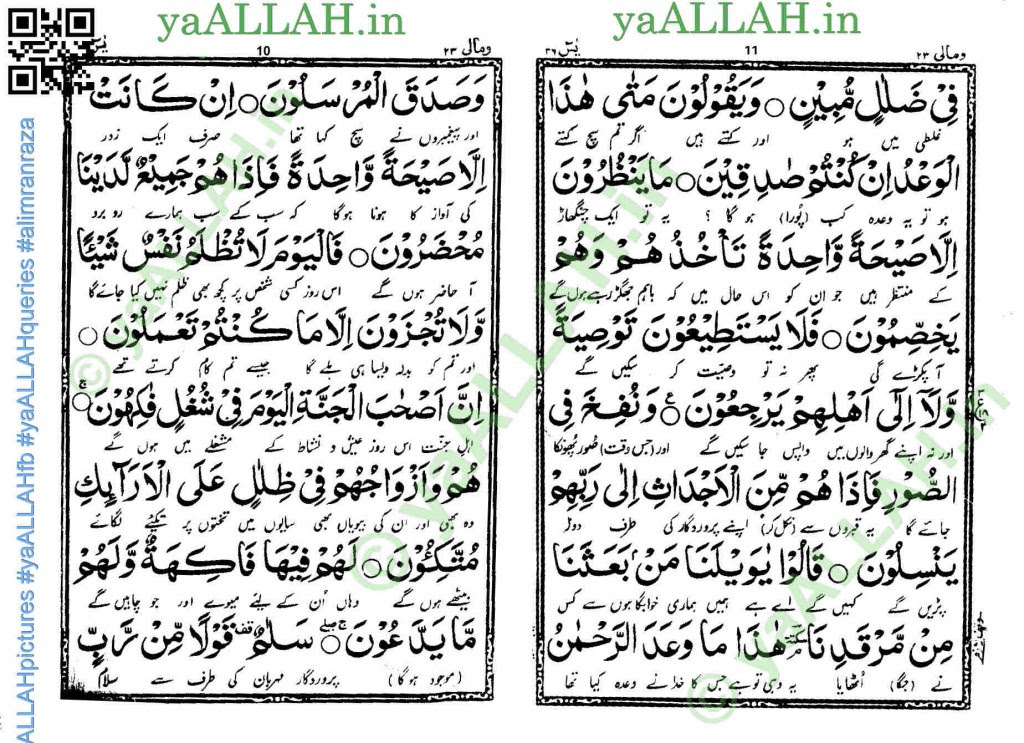 yaALLAH.in
yaALLAH.in
ومالی ٢٣
11
یٰسٓ ٣٦
فِیْ ضَلٰلٍ مُّبِیْنٍ ○ وَیَقُوْلُوْنَ مَتٰی هٰذَا
غلطی میں ہو اور کہتے ہیں اگر تم سچ کہتے
الْوَعْدُ اِنْ كُنْتُمْ صٰدِقِیْنَ ○ مَا یَنْظُرُوْنَ
ہو تو یہ وعدہ کب (پورا) ہو گا ؟ یہ تو ایک چنگھاڑ
اِلَّا صَیْحَةً وَّاحِدَةً تَاْخُذُهُمْ وَهُمْ
کے منتظر ہیں جو ان کو اس حال میں کہ باہم جھگڑ رہے ہوں گے
یَخِصِّمُوْنَ ○ فَلَا یَسْتَطِیْعُوْنَ تَوْصِیَةً
آ پکڑے گی پھر نہ تو وصیت کر سکیں گے
وَّلَاۤ اِلٰۤی اَهْلِهِمْ یَرْجِعُوْنَ ○ وَنُفِخَ فِی
اور نہ اپنے گھر والوں میں واپس جا سکیں گے اور (جس وقت) صور پھونکا
الصُّوْرِ فَاِذَا هُمْ مِّنَ الْاَجْدَاثِ اِلٰی رَبِّهِمْ
جائے گا یہ قبروں سے (نکل کر) اپنے پروردگار کی طرف دوڑ
یَنْسِلُوْنَ ○ قَالُوْا یٰوَیْلَنَا مَنْۢ بَعَثَنَا
پڑیں گے کہیں گے اے ہے ہمیں ہماری خوابگاہوں سے کس
مِنْ مَّرْقَدِنَا سكتة هٰذَا مَا وَعَدَ الرَّحْمٰنُ
نے (جگا) اٹھایا یہ وہی تو ہے جس کا خدا نے وعدہ کیا تھا
ومالی ٢٣
10
یٰسٓ
وَصَدَقَ الْمُرْسَلُوْنَ ○ اِنْ كَانَتْ
اور پیغمبروں نے سچ کہا تھا صرف ایک زور
اِلَّا صَیْحَةً وَّاحِدَةً فَاِذَا هُمْ جَمِیْعٌ لَّدَیْنَا
کی آواز کا ہونا ہوگا کہ سب کے سب ہمارے رو برو
مُحْضَرُوْنَ ○ فَالْیَوْمَ لَا تُظْلَمُ نَفْسٌ شَیْئًا
آ حاضر ہوں گے اس روز کسی شخص پر کچھ بھی ظلم نہیں کیا جائے گا
وَّلَا تُجْزَوْنَ اِلَّا مَا كُنْتُمْ تَعْمَلُوْنَ ○
اور تم کو بدلہ ویسا ہی ملے گا جیسے تم کام کرتے تھے
اِنَّ اَصْحٰبَ الْجَنَّةِ الْیَوْمَ فِیْ شُغُلٍ فٰكِهُوْنَ ○
اہل جنت اس روز عیش و نشاط کے مشغلے میں ہوں گے
هُمْ وَاَزْوَاجُهُمْ فِیْ ظِلٰلٍ عَلَی الْاَرَآىِٕكِ
وہ بھی اور ان کی بیویاں بھی سایوں میں تختوں پر تکیے لگائے
مُتَّكِـُٔوْنَ ○ لَهُمْ فِیْهَا فَاكِهَةٌ وَّلَهُمْ
بیٹھے ہوں گے وہاں اُن کے لیے میوے اور جو چاہیں گے
مَّا یَدَّعُوْنَ سَلٰمٌ قف قَوْلًا مِّنْ رَّبٍّ
(موجود ہو گا) پروردگار مہربان کی طرف سے سلام
ALLAHpictures #yaALLAHfb #yaALLAHqueries #alimranraza
© yaALLAH.in
© yaALLAH.in
© yaALLAH.in